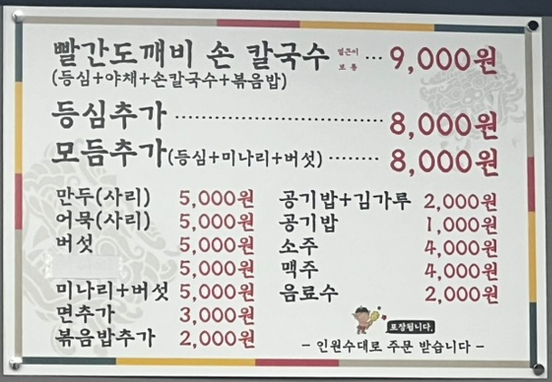 빨간도깨비 손 칼국수 얼큰이 보통 ··· 9,000원
(등심+야채+손칼국수+볶음밥)
등심추가 ······························ 8,000원
모듬추가(등심+미나리+버섯) ········ 8,000원
만두(사리) 5,000원
어묵(사리) 5,000원
버섯 5,000원
5,000원
미나리+버섯 5,000원
면추가 3,000원
볶음밥추가 2,000원
공기밥+김가루 2,000원
공기밥 1,000원
소주 4,000원
맥주 4,000원
음료수 2,000원
포장됩니다.
- 인원수대로 주문 받습니다 -